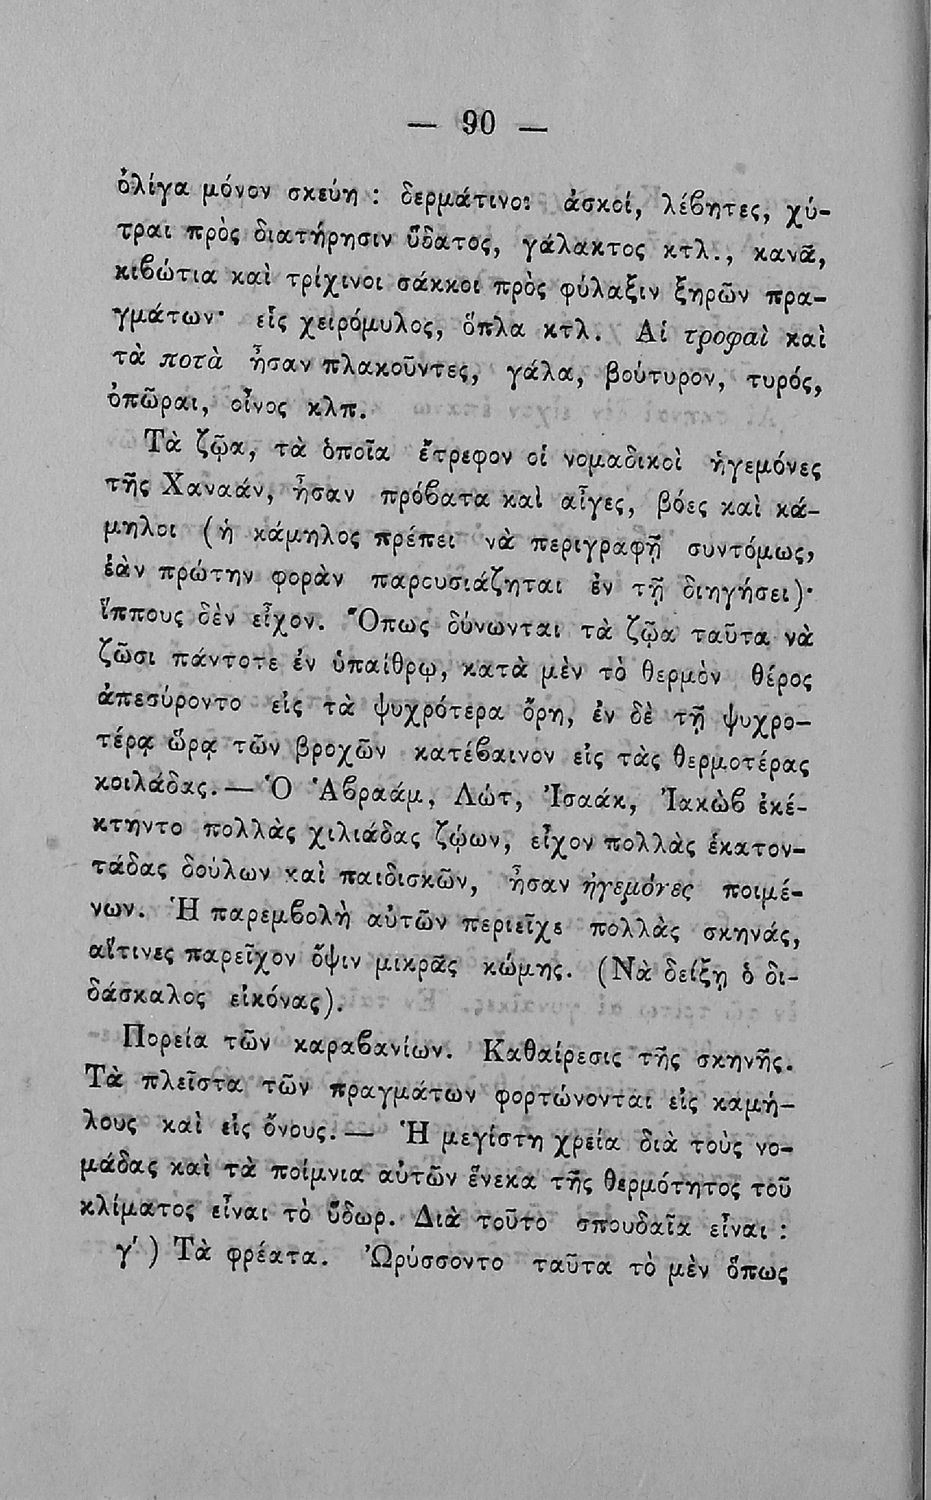 — 90 —
ὀλίγα μόνον σκεύη : δερμάτινοι ἀσκοί, λέβητες, χύ-
τραι πρὸς διατήρησιν ὕδατος, γάλακτος κτλ., κανᾶ,
κιβώτια καὶ τρίχινοι σάκκοι πρὸς φύλαξιν ξηρῶν πρα-
γμάτων· εἷς χειρόμυλος, ὅπλα κτλ. Αἱ τροφαὶ καὶ
τὰ ποτὰ ἦσαν πλακοῦντες, γάλα, βούτυρον, τυρός,
ὀπῶραι, οἶνος κλπ.
Τὰ ζῷα, τὰ ὁποῖα ἔτρεφον οἱ νομαδικοὶ ἡγεμόνες
τῆς Χαναάν, ἦσαν πρόβατα καὶ αἶγες, βόες καὶ κά-
μηλοι (ἡ κάμηλος πρέπει νὰ περιγραφῇ συντόμως,
ἐὰν πρώτην φορὰν παρουσιάζηται ἐν τῇ διηγήσει)·
ἵππους δὲν εἶχον. Ὅπως δύνωνται τὰ ζῷα ταῦτα νὰ
ζῶσι πάντοτε ἐν ὑπαίθρῳ, κατὰ μὲν τὸ θερμὸν θέρος
ἀπεσύροντο εἰς τὰ ψυχρότερα ὄρη, ἐν δὲ τῇ ψυχρο-
τέρᾳ ὥρᾳ τῶν βροχῶν κατέβαινον εἰς τὰς θερμοτέρας
κοιλάδας.— Ὁ Ἀβραάμ, Λώτ, Ἰσαάκ, Ἰακὼβ ἐκέ-
κτηντο πολλὰς χιλιάδας ζῴων, εἶχον πολλὰς ἑκατον-
τάδας δούλων καὶ παιδισκῶν, ἦσαν ἡγεμόνες ποιμέ-
νων. Ἡ παρεμβολὴ αὐτῶν περιεῖχε πολλὰς σκηνάς,
αἵτινες παρεῖχον ὄψιν μικρᾶς κώμης. (Νὰ δείξῃ ὁ δι-
δάσκαλος εἰκόνας).
Πορεία τῶν καραβανίων. Καθαίρεσις τῆς σκηνῆς.
Τὰ πλεῖστα τῶν πραγμάτων φορτώνονται εἰς καμή-
λους καὶ εἰς ὄνους.— Ἡ μεγίστη χρεία διὰ τοὺς νο-
μάδας καὶ τὰ ποίμνια αὐτῶν ἕνεκα τῆς θερμότητος τοῦ
κλίματος εἶναι τὸ ὕδωρ. Διὰ τοῦτο σπουδαῖα εἶναι :
γ΄) Τὰ φρέατα. Ὠρύσσοντο ταῦτα τὸ μὲν ὅπως